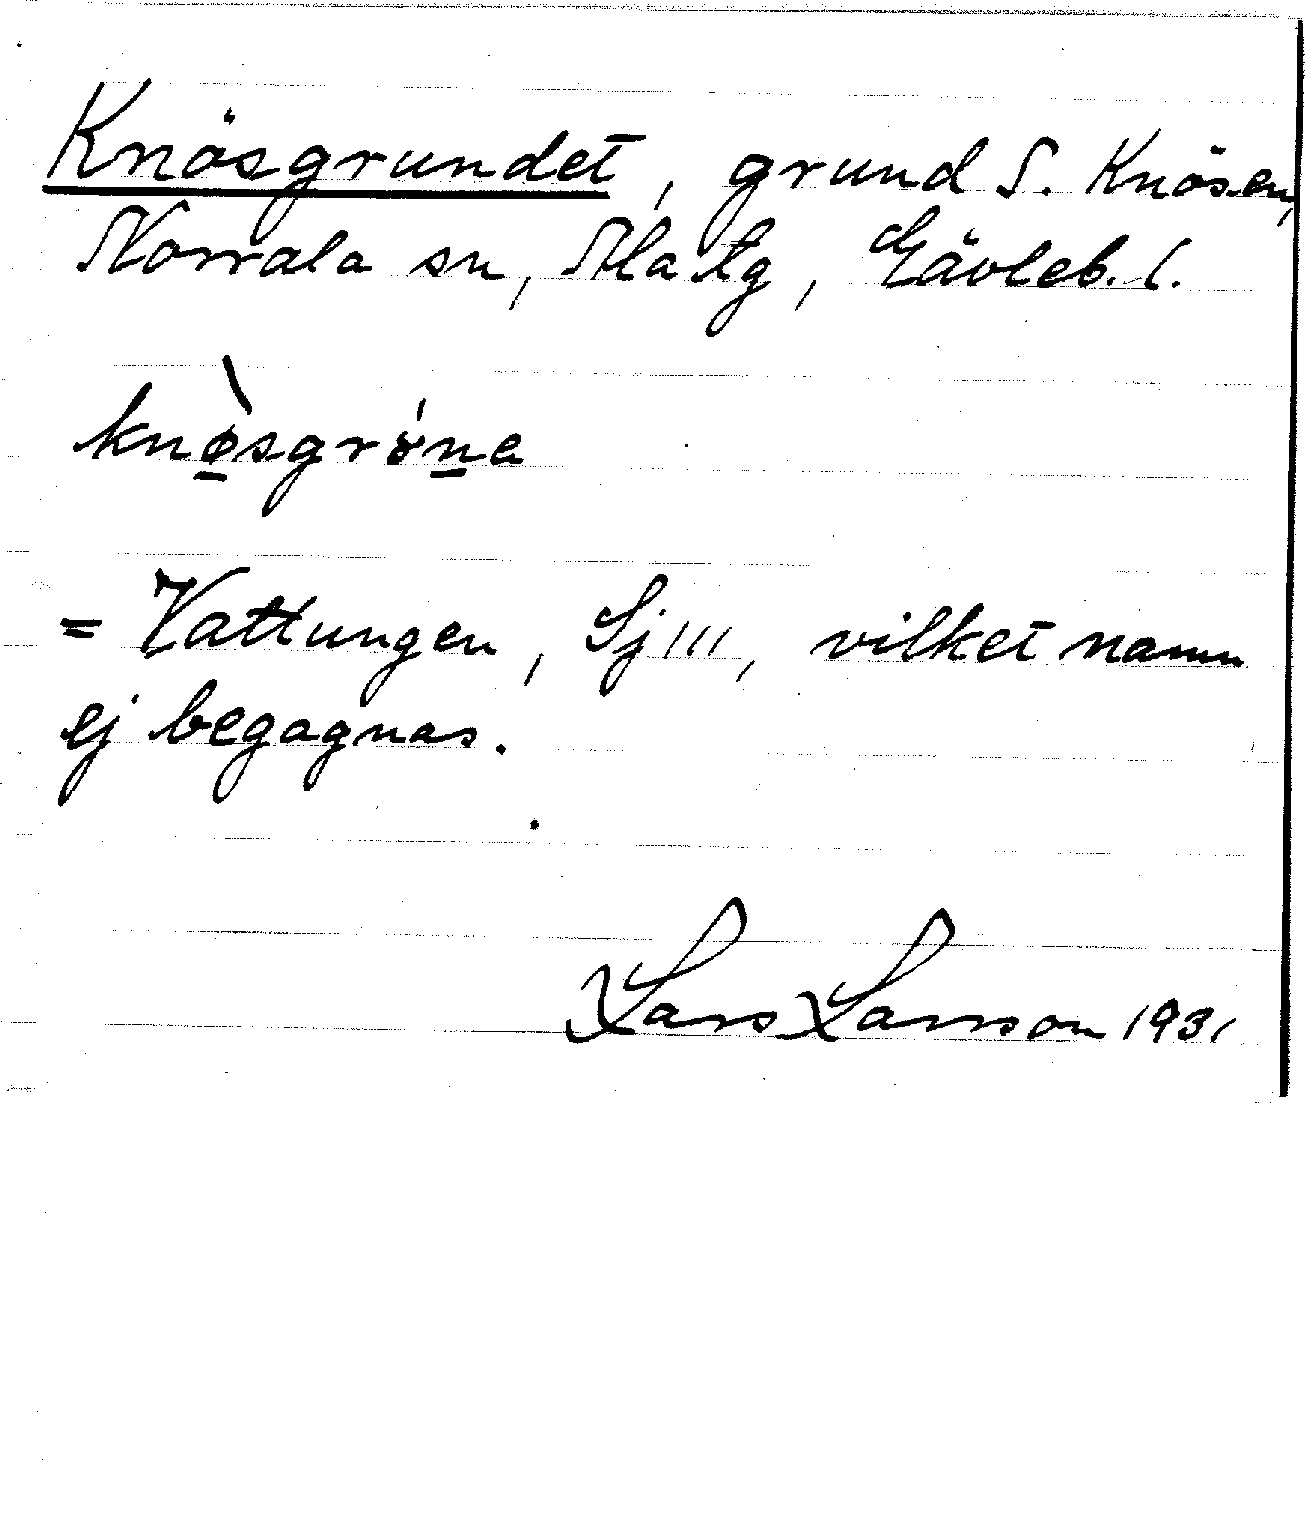 Knösgrundet, grund S. Knösen,
Norrala sn, Ala tg, Gävleb. l.
knø̀sgrɤ́na
= Vattungen, Sj 111, vilket namn
ej begagnas.
Lars Larsson 1931